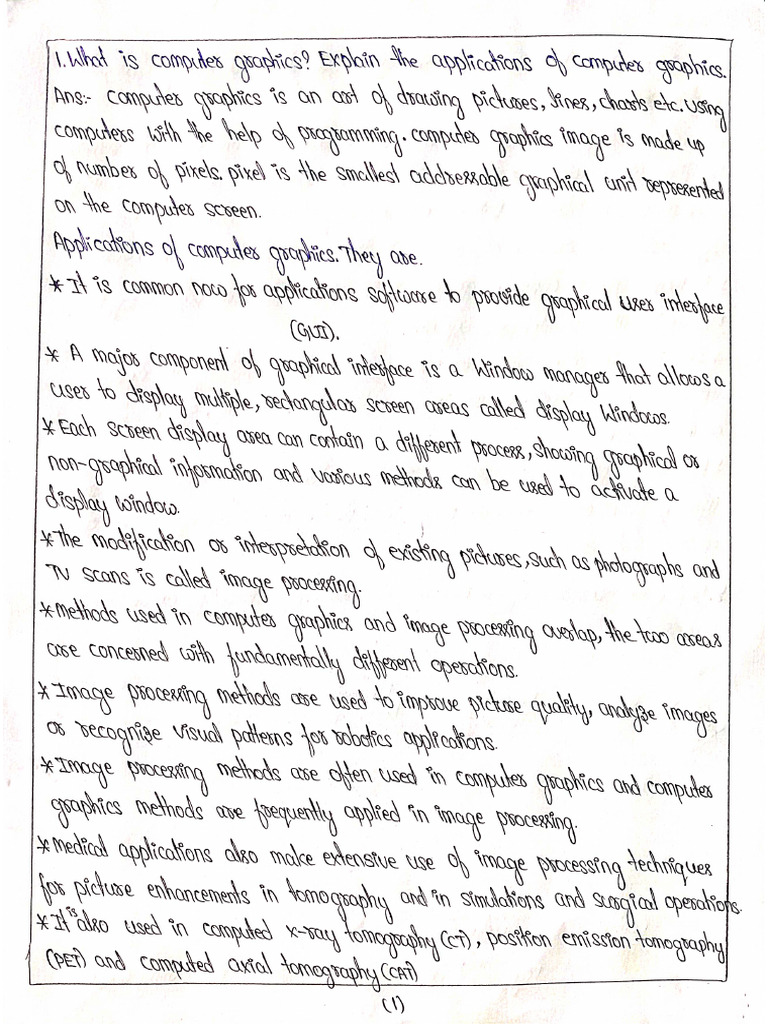 1. What is computer graphics? Explain the applications of computer graphics.
Ans:- computer graphics is an art of drawing pictures, lines, charts etc. using
computers with the help of programming. computer graphics image is made up
of number of pixels. pixel is the smallest addressable graphical unit represented
on the computer screen.
Applications of computer graphics. They are.
* It is common now for applications software to provide graphical user interface
(GUI).
* A major component of graphical interface is a window manager that allows a
user to display multiple, rectangular screen areas called display windows.
* Each screen display area can contain a different process, showing graphical or
non-graphical information and various methods can be used to activate a
display window.
* The modification or interpretation of existing pictures, such as photographs and
TV scans is called image processing.
* Methods used in computer graphics and image processing overlap, the two areas
are concerned with fundamentally different operations.
* Image processing methods are used to improve picture quality, analyze images
or recognize visual patterns for robotics applications.
* Image processing methods are often used in computer graphics and computer
graphics methods are frequently applied in image processing.
* Medical applications also make extensive use of image processing techniques
for picture enhancements in tomography and in simulations and surgical operations.
* It is also used in computed x-ray tomography (CT), position emission tomography
(PET) and computed axial tomography (CAT)
(1)